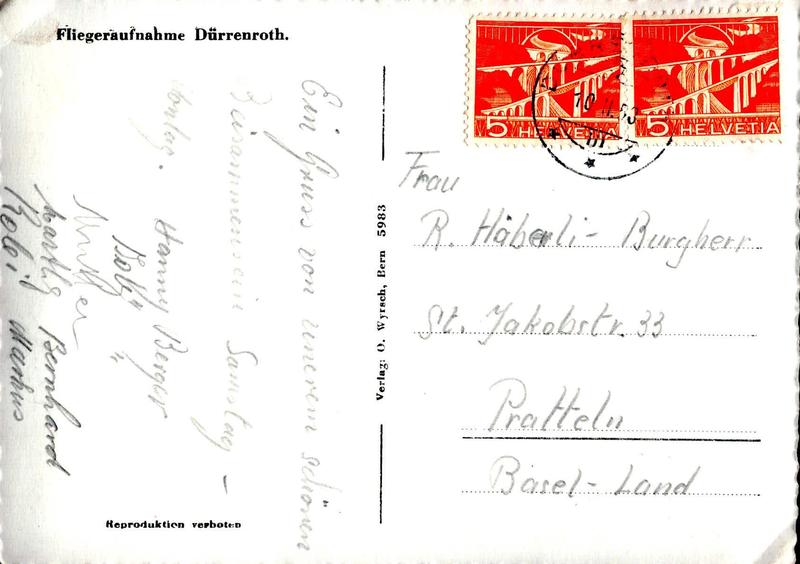 Fliegeraufnahme Dürrenroth.
Ein Gruss von unerem schönen
Zusammensein Samstag –
Sonntag. Hanny Berger
Mutter
Bernhard
Robi Markus
Reproduktion verboten
Verlag: O. Wyrsch, Bern 5983
5 HELVETIA
5 HELVETIA
Frau
R. Häberli-Burgherr
St. Jakobstr. 33
Pratteln
Basel-Land